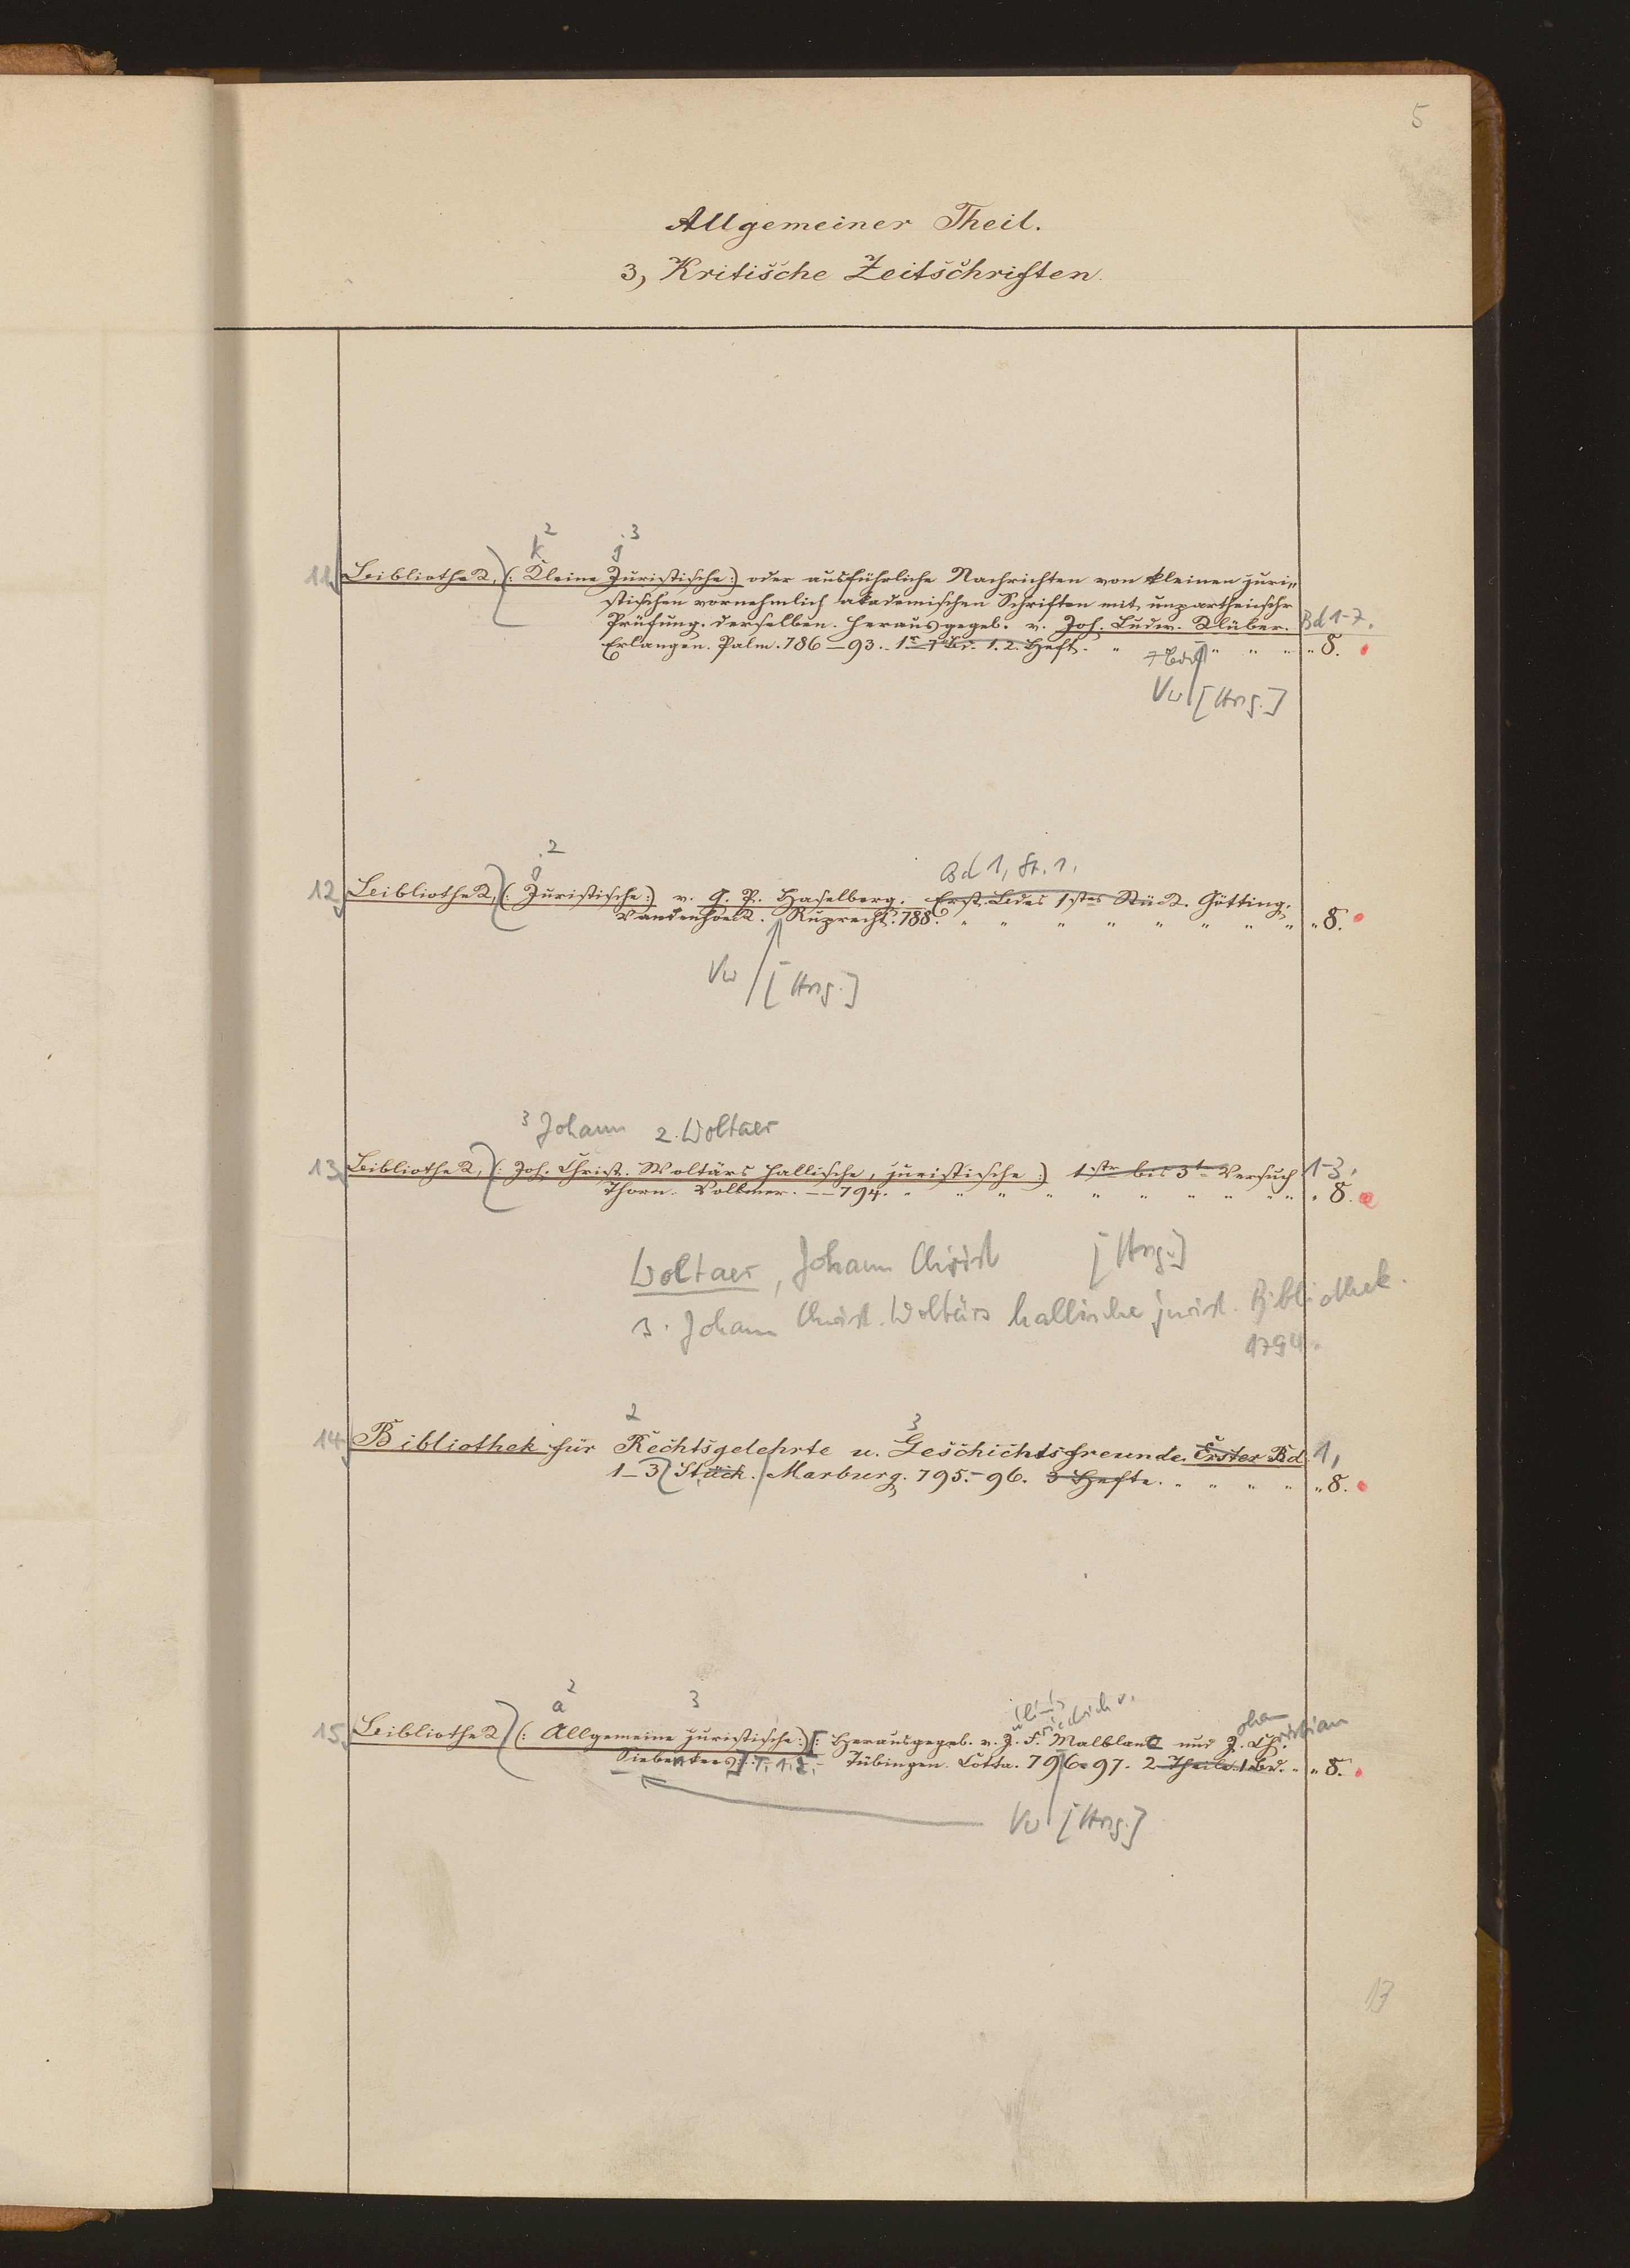 5
Allgemeiner Theil.
3, Kritische Zeitschriften.
k 2 j 3
11 Bibliothek, (: Kleine Juristische :) oder ausführliche Nachrichten von kleinen juri„
stischen vornehmlich akademischen Schriften mit unpartheiischr
Prüfung derselben. Herausgegeb. v. Joh. Ludw. Klüber. Bd 1-7.
Erlangen. Palm. 786–93. 1r–7r Bd. 1. 2. Heft. „ „ „ „ „ 8.
Vw [Hrsg.]
j 2 Bd 1, St. 1.
12 Bibliothek, (: Juristische :) v. G. P. Haselberg. Erst. Bdes 1stes Stück. Götting.
Vandenhoeck. Ruprecht. 788. „ „ „ „ „ „ „ „ „ 8.
Vw [Hrsg.]
3 Johann 2. Woltaer
13 Bibliothek, (: Joh. Christ. Woltärs hallische, juristische :) 1str bis 3t Versuch 1-3,
Thorn. Vollmer. –– 794. „ „ „ „ „ „ „ „ „ „ 8.
Woltaer, Johann Christ [Hrsg.]
s. Johann Christ. Woltärs hallische jurist. Bibliothek.
1794.
2 3
14 Bibliothek für Rechtsgelehrte u. Geschichtsfreunde. Erster Bd. 1,
1–3 Stück. Marburg. 795.–96. 3 Hefte. „ „ „ „ „ 8.
a 2 3 riedrich v. ohann
15 Bibliothek (: Allgemeine juristische :) [: Herausgegeb. v. J. F. Malblanc und J. Ch. ristian
Siebenkees :] T. 1. 2. – Tübingen. Cotta. 796–97. 2 Theile. 1 Bd. „ „ 8.
Vw [Hrsg.]
13